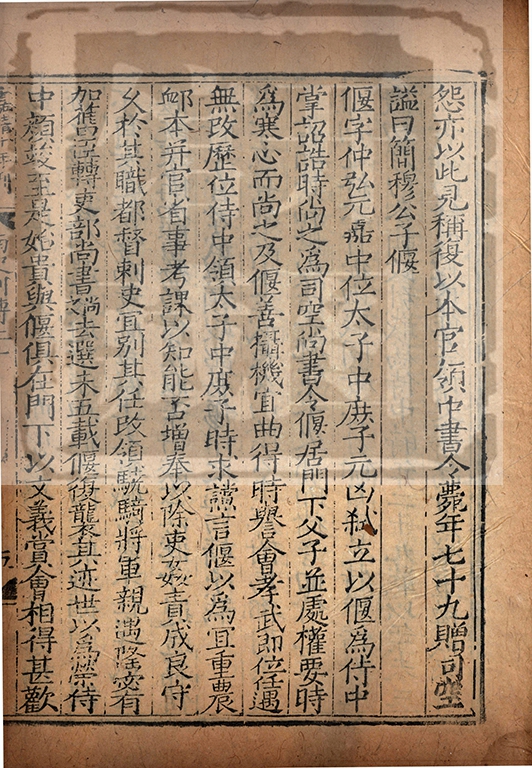 怨亦以此見稱復以本官領中書令薨年七十九贈司空
謚曰簡穆公子偃
偃字仲弘元嘉中位太子中庶子元凶弑立以偃為侍中
掌詔誥時尚之為司空尚書令偃居門下父子並處權要時
為寒心而尚之及偃善攝機宜曲得時譽會孝武即位任遇
無改歷位侍中領太子中庶子時求讜言偃以為宜重農
郵本并官省事考課以知能否增奉以除吏姦責成良守
久於其職都督刺史宜別其任改領驍騎將軍親遇隆密有
加舊臣轉吏部尚書尚之去選未五載偃復襲其迹世以為榮侍
中顔竣至是始貴與偃俱在門下以文義賞會相得甚歡